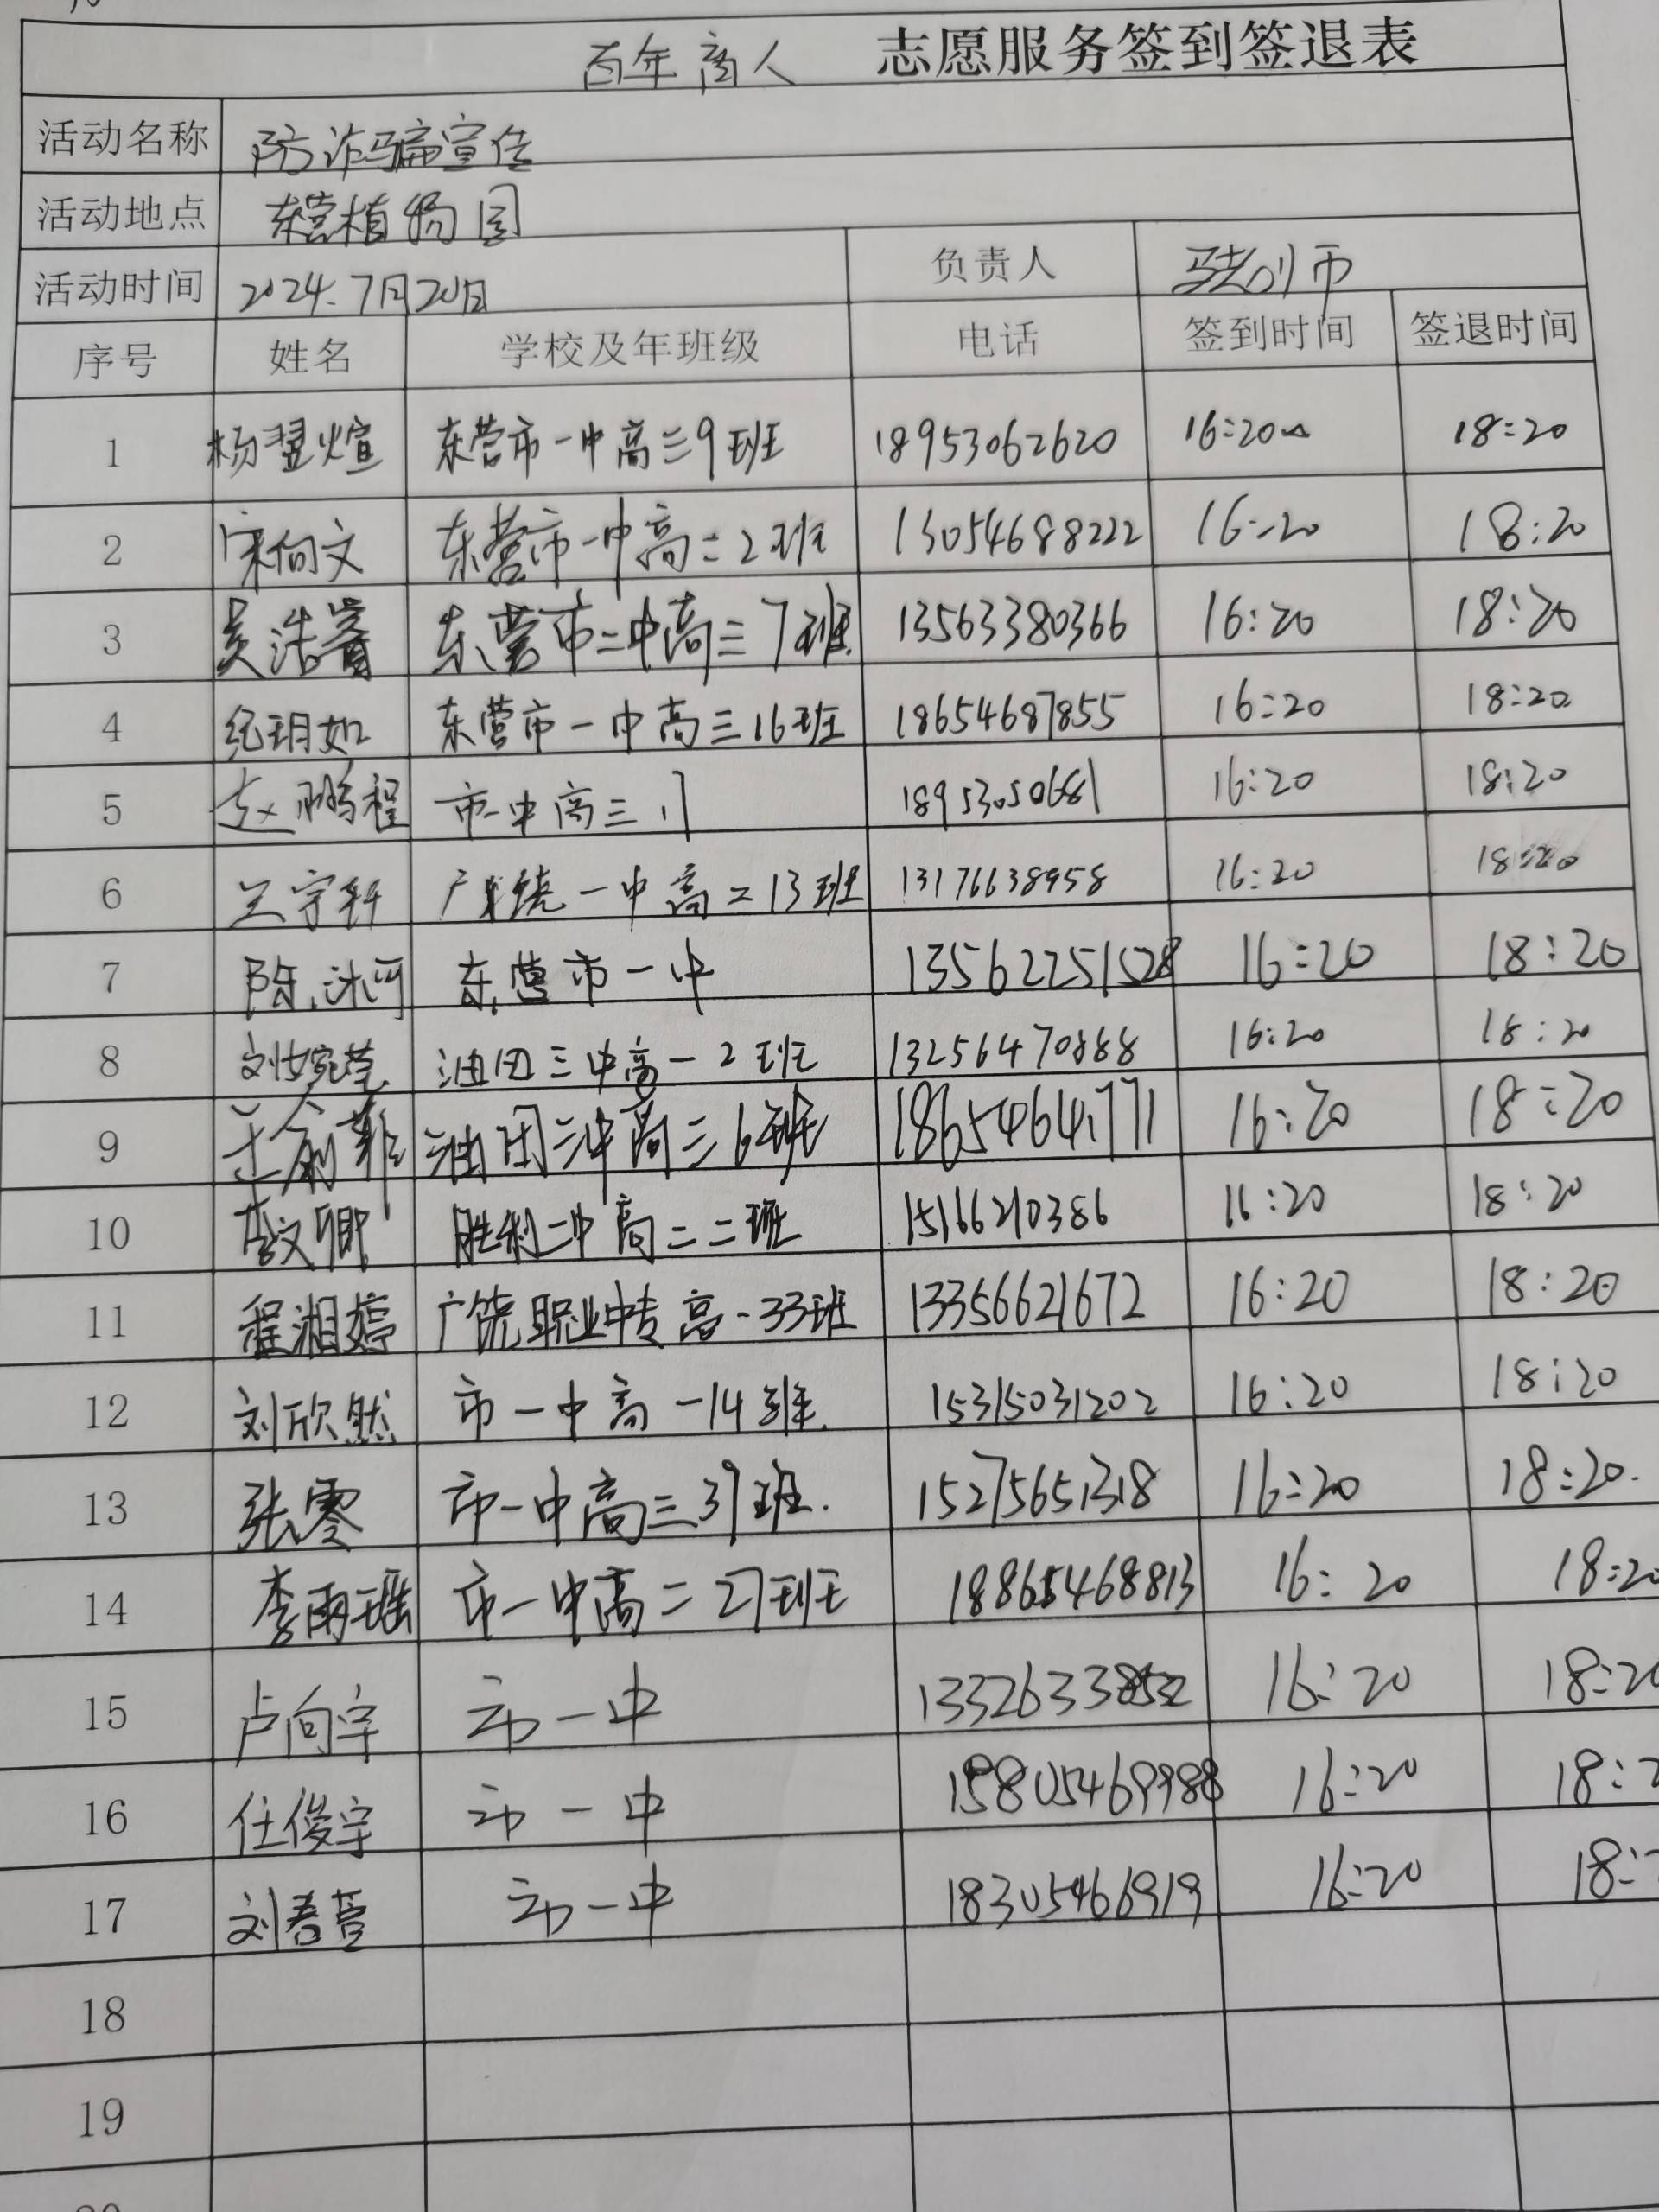 百年商人 志愿服务签到签退表
活动名称 防诈骗宣传
活动地点 东营植物园
活动时间 2024.7月20日 负责人
序号 姓名 学校及年班级 电话 签到时间 签退时间
1 杨翌煊 东营市一中高三9班 18953062620 16:20 18:20
2 宋向文 东营市一中高二2班 13054688222 16:20 18:20
3 吴浩睿 东营市二中高三7班 13563380366 16:20 18:20
4 纪玥如 东营市一中高三16班 18654687855 16:20 18:20
5 赵鹏程 市一中高三 18953050681 16:20 18:20
6 兰宇轩 广饶一中高二13班 13176638958 16:20 18:20
7 陈沐河 东营市一中 13562251528 16:20 18:20
8 刘婉莹 油田三中高一2班 13256470888 16:20 18:20
9 油田二中高二6班 18654641771 16:20 18:20
10 李文卿 胜利二中高二二班 15166210386 16:20 18:20
11 程湘婷 广饶职业中专高一33班 13356621672 16:20 18:20
12 刘欣然 市一中高一14班. 15315031202 16:20 18:20
13 张零 市一中高三39班. 15275651318 16:20 18:20.
14 李雨瑶 市一中高二27班 18865468813 16:20 18:20
15 卢向宇 市一中 16:20 18:20
16 任俊宇 市一中 15805469988 16:20 18:2
17 刘春萱 市一中 18305466919 16:20 18:
18
19